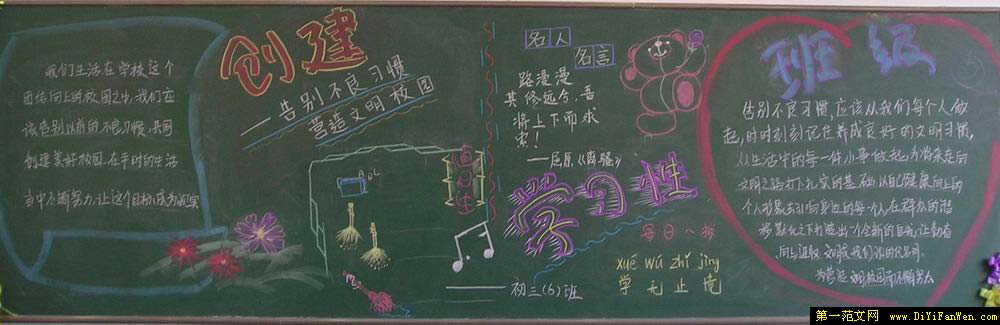 我们生活在学校这个
团结向上的校园之中,我们应
该告别以前的不良习惯,共同
创建美好校园.在平时的生活
当中不断努力,让这个目标成为现实
创建
——告别不良习惯
营造文明校园
值日生
名人
名言
路漫漫
其修远兮,吾
将上下而求
索!
——屈原《离骚》
学习性
每日一拆
xué wú zhǐ jìng
学无止境
初三(6)班
班级
告别不良习惯,应该从我们每个人做
起,时时刻刻记住养成良好的文明习惯,
从生活中的每一件小事做起,为将来走向
文明之路打下扎实的基础,以自己健康向上的
个人形象去影响身边的每个人,在群众的潜
移默化之下打造出一个全新的自我,让勤奋
向上进取
为营造文明校园而不懈努力
第一范文网 www.DiYiFanWen.com